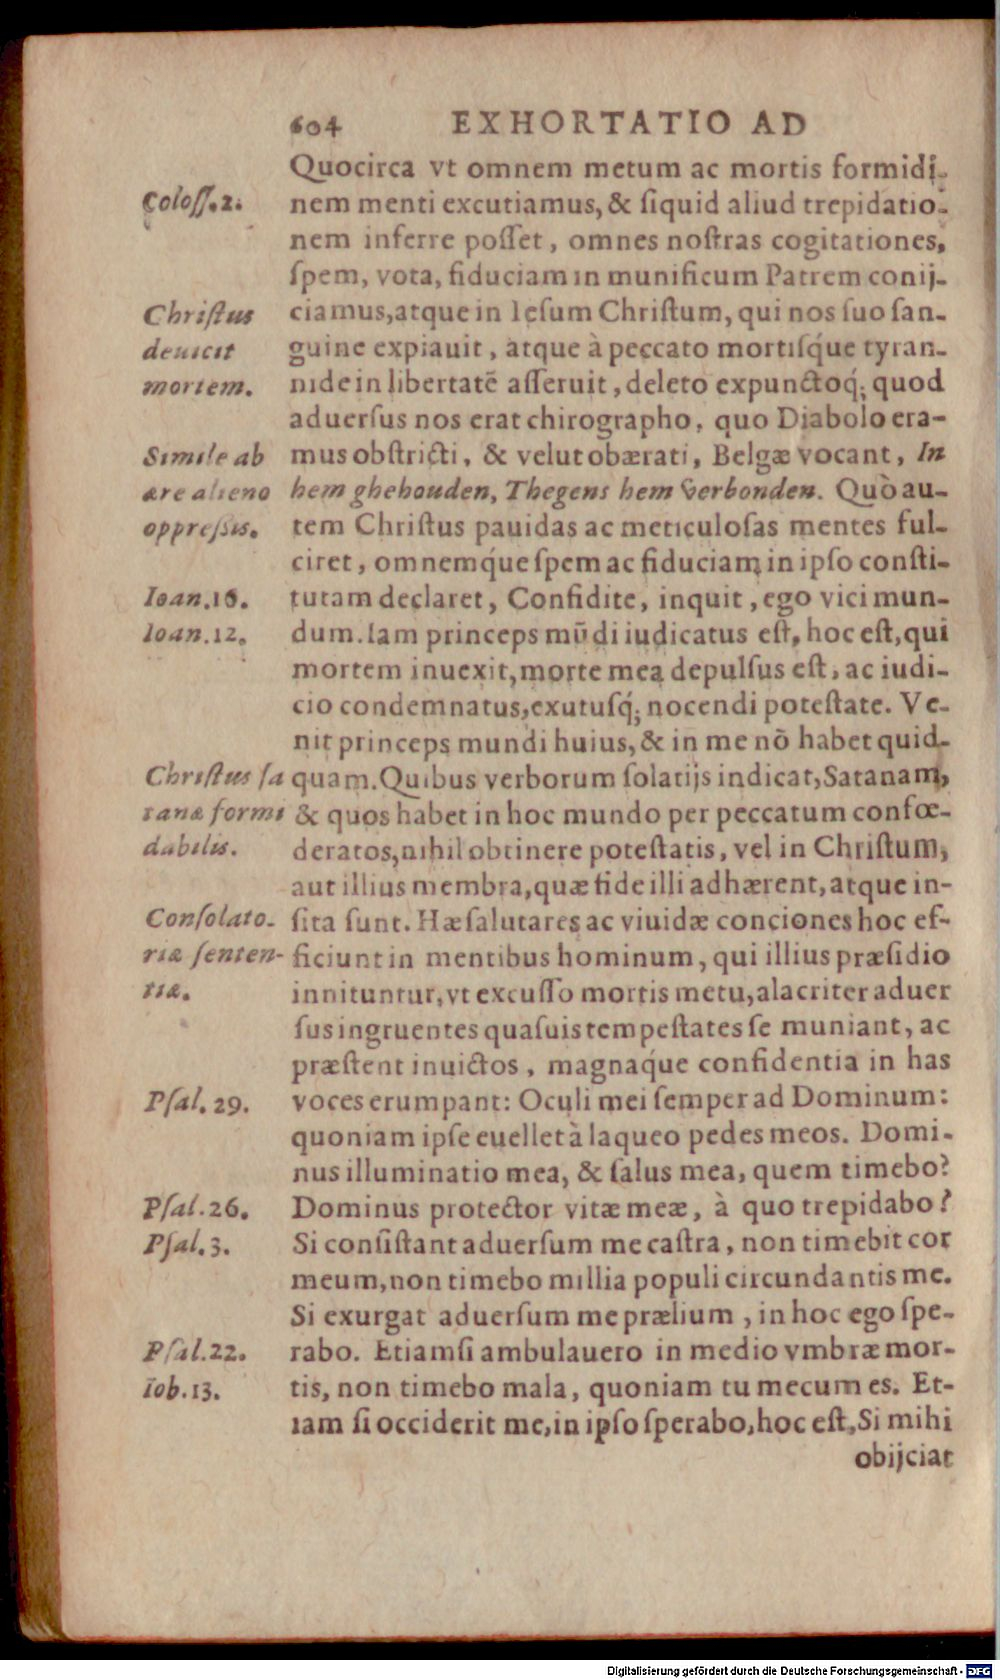 604 EXHORTATIO AD
Quocirca vt omnem metum ac mortis formidi-
Coloſſ.2.
nem menti excutiamus, & ſiquid aliud trepidatio-
nem inferre poſſet, omnes noſtras cogitationes,
ſpem, vota, fiduciam in munificum Patrem conij-
Chriſtus
deuicit
mortem.
ciamus, atque in Ieſum Chriſtum, qui nos ſuo ſan-
guine expiauit, atque à peccato mortiſq́ue tyran-
nide in libertatē aſſeruit, deleto expunctoq́; quod
aduerſus nos erat chirographo, quo Diabolo era-
Simile ab
ære alieno
oppreßis.
mus obſtricti, & velut obærati, Belgæ vocant, In
hem ghehouden, Thegens hem verbonden. Quò au-
tem Chriſtus pauidas ac meticuloſas mentes ful-
ciret, omnemq́ue ſpem ac fiduciam in ipſo conſti-
Ioan.16.
Ioan.12.
tutam declaret, Confidite, inquit, ego vici mun-
dum. Iam princeps mūdi iudicatus eſt, hoc eſt, qui
mortem inuexit, morte mea depulſus eſt, ac iudi-
cio condemnatus, exutuſq́; nocendi poteſtate. Ve-
nit princeps mundi huius, & in me nō habet quid-
Chriſtus ſa
tanæ formi
dabilis.
quam. Quibus verborum ſolatijs indicat, Satanam,
& quos habet in hoc mundo per peccatum confœ-
deratos, nihil obtinere poteſtatis, vel in Chriſtum,
aut illius membra, quæ fide illi adhærent, atque in-
Conſolato-
riæ ſenten-
tiæ.
ſita ſunt. Hæ ſalutares ac viuidæ conciones hoc ef-
ficiunt in mentibus hominum, qui illius præſidio
innituntur, vt excuſſo mortis metu, alacriter aduer
ſus ingruentes quaſuis tempeſtates ſe muniant, ac
præſtent inuictos, magnaq́ue confidentia in has
Pſal.29.
voces erumpant: Oculi mei ſemper ad Dominum:
quoniam ipſe euellet à laqueo pedes meos. Domi-
nus illuminatio mea, & ſalus mea, quem timebo?
Pſal.26.
Pſal.3.
Dominus protector vitæ meæ, à quo trepidabo?
Si conſiſtant aduerſum me caſtra, non timebit cor
meum, non timebo millia populi circundantis me.
Si exurgat aduerſum me prælium, in hoc ego ſpe-
Pſal.22.
Iob.13.
rabo. Etiamſi ambulauero in medio vmbræ mor-
tis, non timebo mala, quoniam tu mecum es. Et-
iam ſi occiderit me, in ipſo ſperabo, hoc eſt, Si mihi
obijciat
Digitalisierung gefördert durch die Deutsche Forschungsgemeinschaft - DFG